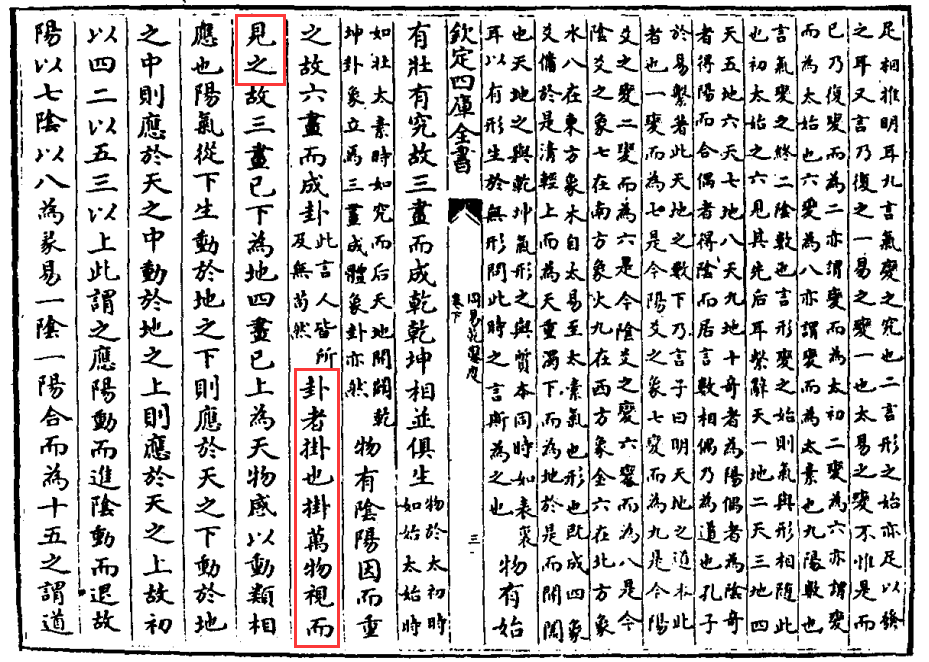 足相推明耳九言氣變之究也二言形之始亦足以
之耳又言乃復之一易之變一也太易之變不惟是而
已乃復變而為二亦謂變而為太初二變為六亦謂變
而為太始也六變為八亦謂變而為太素也九陽數也
言氣變之終二陰數也言形變之始則氣與形相隨此
也初太始之六見其先后耳繫辭天一地二天三地四
天五地六天七地八天九地十奇者為陽偶者為陰奇
者得陽而合偶者得陰而居言數相偶乃為道也孔子
於易繫著此天地之數下乃言子曰明天地之道本此
者也一變而為七是今陽爻之象七變而為九是今陽
爻之變二變而為六是今陰爻之變六變而為八是今
陰爻之象七在南方象火九在西方象金六在北方象
水八在東方象木自太易至太素氣也形也既成四象
爻備於是清輕上而為天重濁下而為地於是而開闔
也天地之與乾坤氣形之與質本同時如表裏
耳以有形生於無形問此時之言斯為之也
物有始
欽定四庫全書
周易乾鑿度
卷下
三
有壯有究故三畫而成乾乾坤相並俱生
物於太初時
如始太始時
如壯太素時如究而后天地開闢乾
坤卦象立焉三畫成體象卦亦然
物有陰陽因而重
之故六畫而成卦
此言人皆所
及無苟然
卦者掛也掛萬物視而
見之故三畫已下為地四畫已上為天物感以動類相
應也陽氣從下生動於地之下則應於天之下動於地
之中則應於天之中動於地之上則應於天之上故初
以四二以五三以上此謂之應陽動而進陰動而退故
陽以七陰以八為彖易一陰一陽合而為十五之謂道